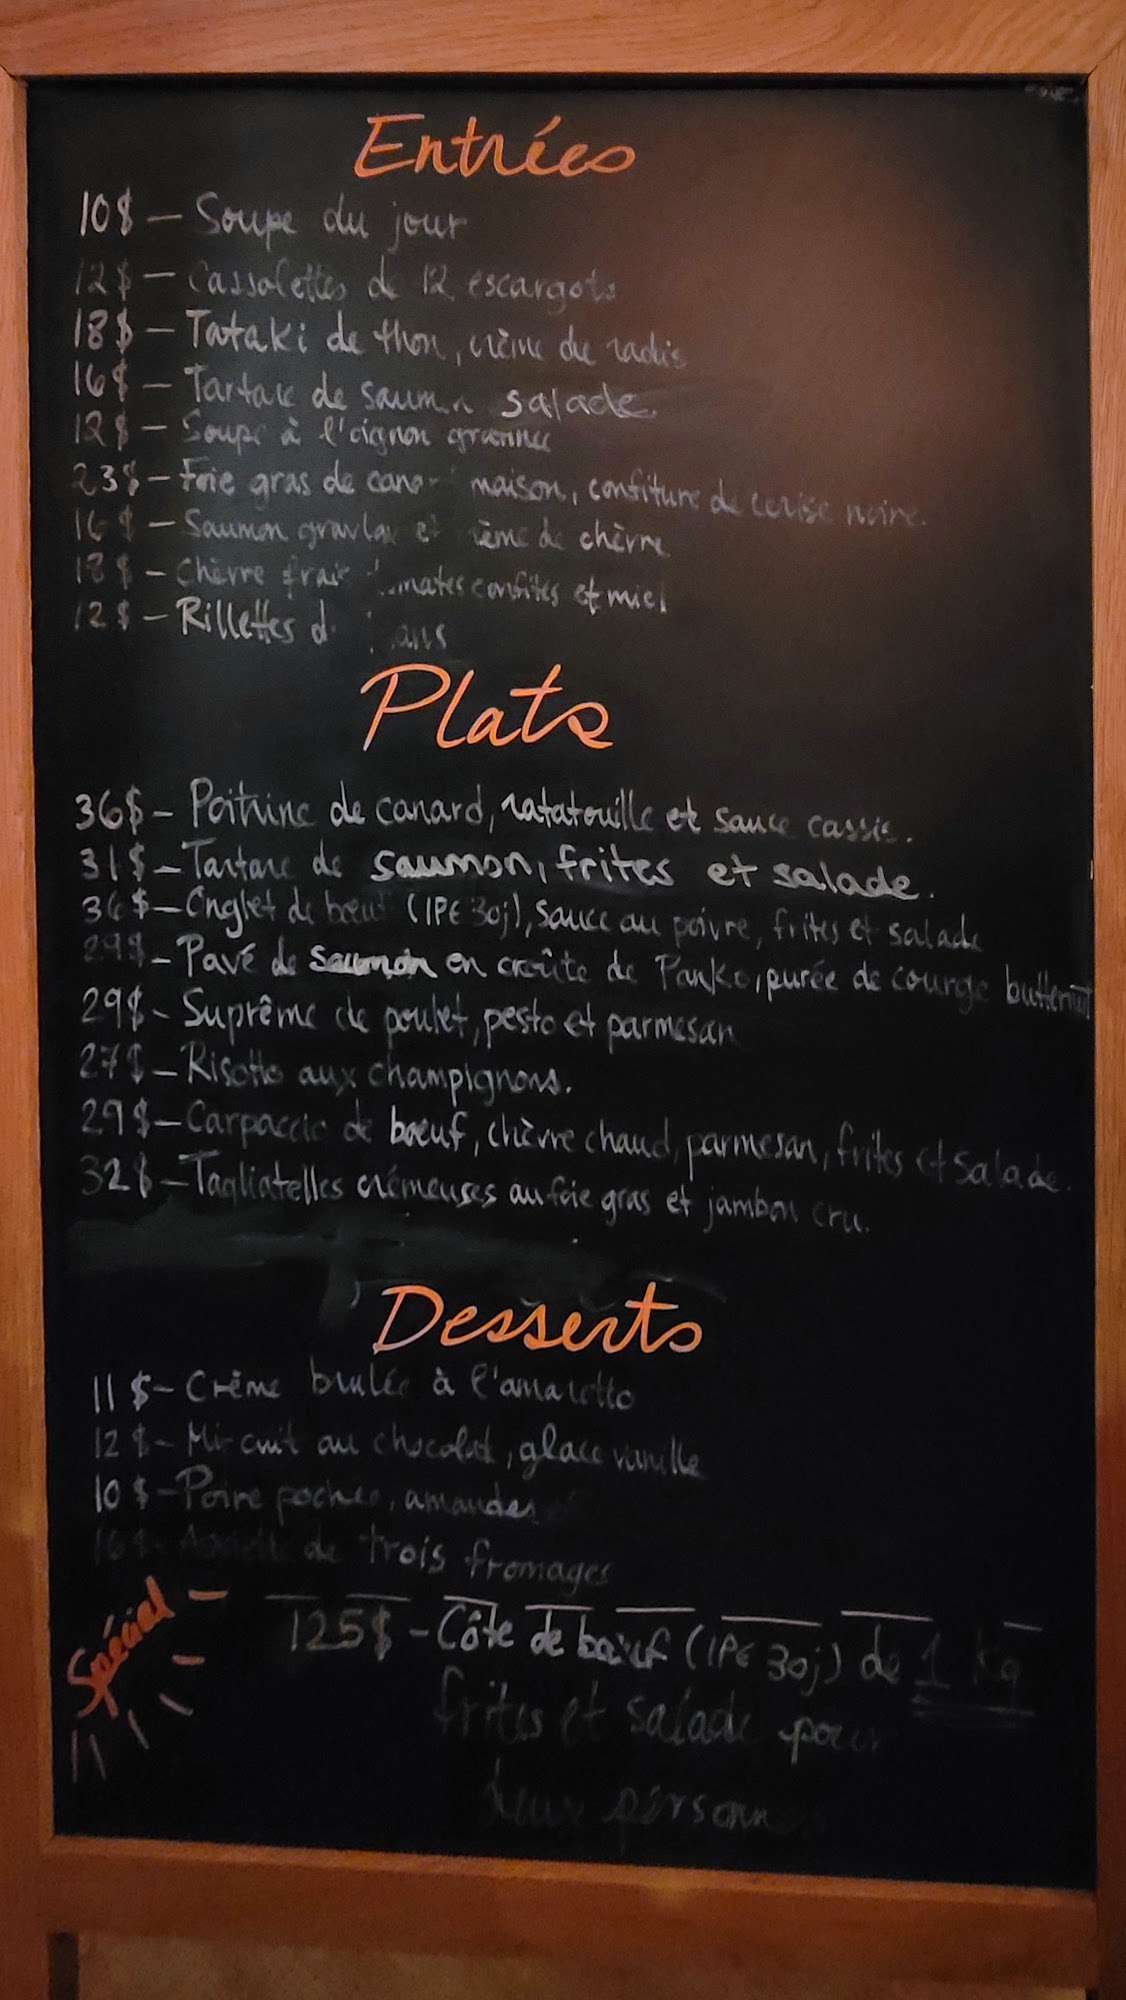 Entrées
10$ - Soupe du jour
12$ - Cassolettes de 12 escargots
18$ - Tataki de thon, crème de radis
16$ - Tartare de saumon salade
12$ - Soupe à l'oignon gratinée
23$ - Foie gras de canard maison, confiture de cerise noire.
16$ - Saumon gravlax et crème de chèvre
18$ - Chèvre frais tomates confites et miel
12$ - Rillettes
Plats
36$ - Poitrine de canard, ratatouille et sauce cassis.
31$ - Tartare de saumon, frites et salade.
36$ - Onglet de bœuf (IPE 30j), sauce au poivre, frites et salade
29$ - Pavé de saumon en croûte de Panko, purée de courge butternut
29$ - Suprême de poulet, pesto et parmesan
27$ - Risotto aux champignons.
29$ - Carpaccio de bœuf, chèvre chaud, parmesan, frites et salade.
32$ - Tagliatelles crémeuses au foie gras et jambon cru.
Desserts
11$ - Crème brulée à l'amaretto
12$ - Mi-cuit au chocolat, glace vanille
10$ - Poire pochée, amandes
16$ - Assiette de trois fromages
Spécial
125$ - Côte de bœuf (IPE 30j) de 1 Kg
frites et salade pour
deux personnes